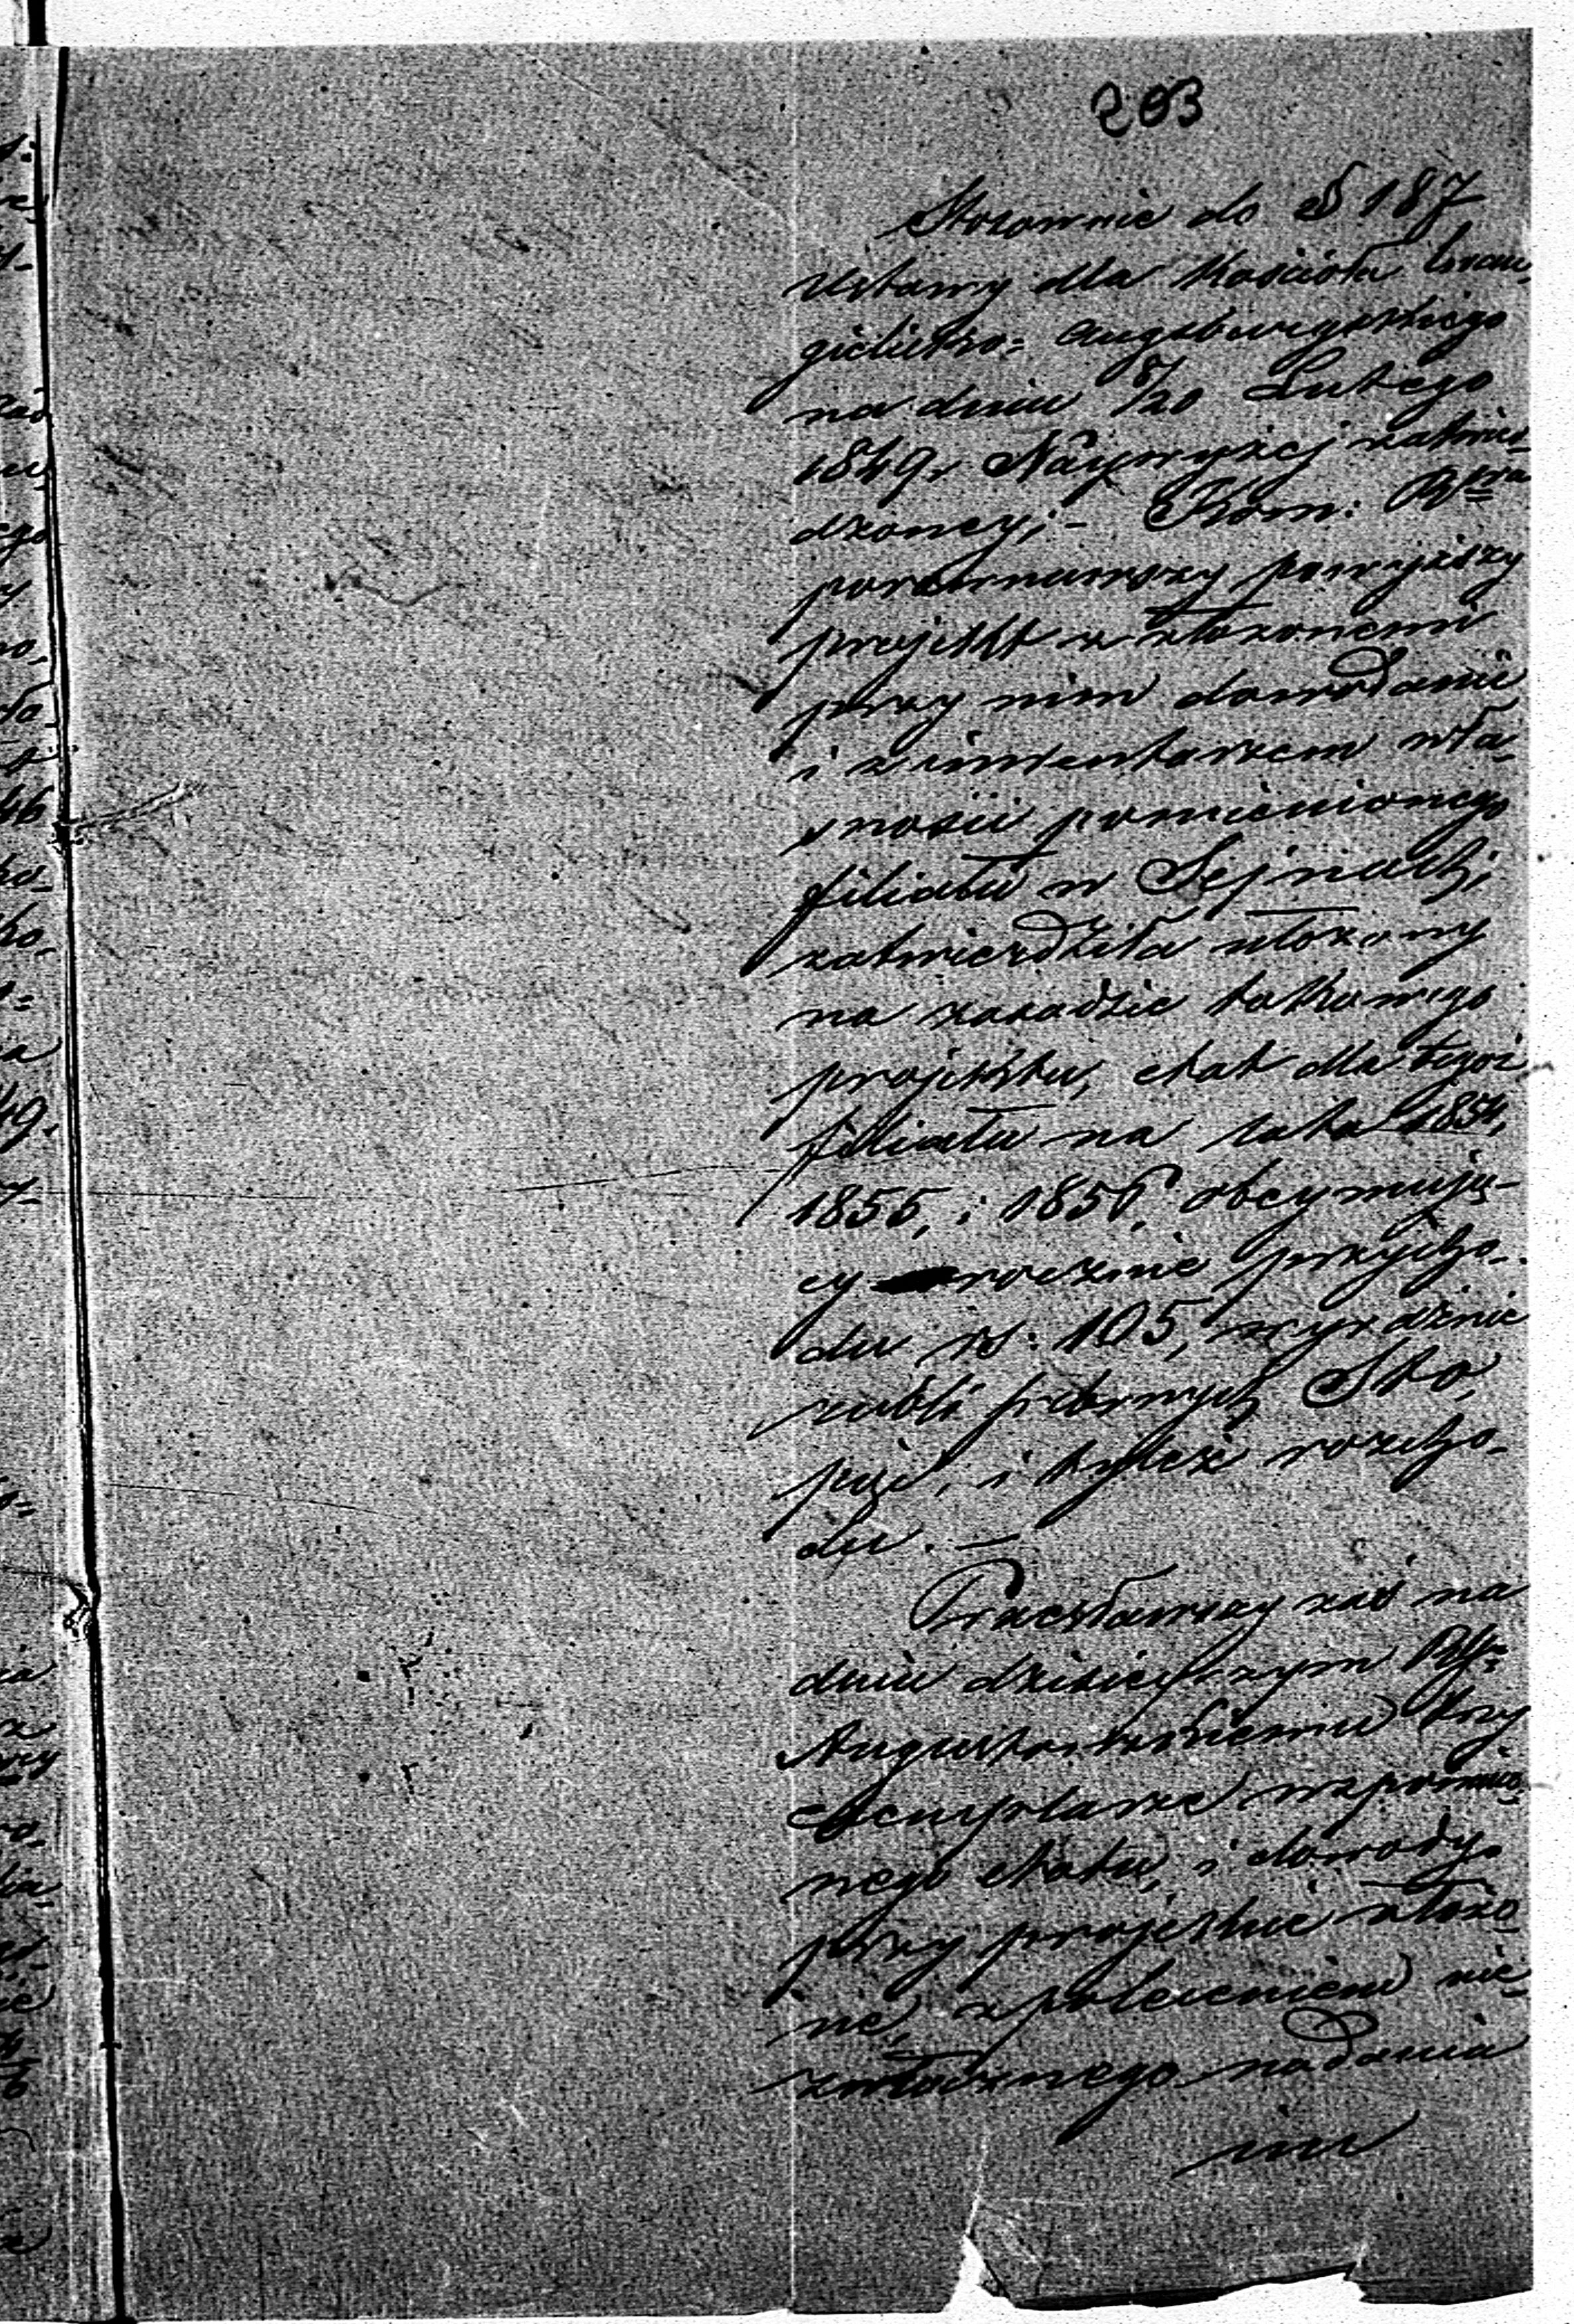 203
Stosownie do § 187
Ustawy dla Kościoła Ewan-
gielicko= Augsburgskiego
na dniu 8/20 Lutego
1849 r Najwyżej zatwier-
dzoney; - Kom: Rząa
porównawszy powyższy
projekt z złożonemi
przy nim dowodami
i z inwentarzem wła-
sności pomienionego
filiału w Sejnach,
zatwierdziła ułożony
na zasadzie takowego
projektu, etat dla tegoż
filiału na lata 1854,
1855, i 1856, obejmują-
cy rocznie przycho-
du rs: 105, wyraźnie
rubli srebrnych Sto,
pięć, i tyleż rozcho-
du. —
Przesławszy zaś na
dniu dzisiejszym Rz:
Augustowskiemu trzy
exemplarze wspomnio-
nego etatu, i dowody
przy projekcie złożo-
ne, z poleceniem nie-
zwłocznego nadania
im